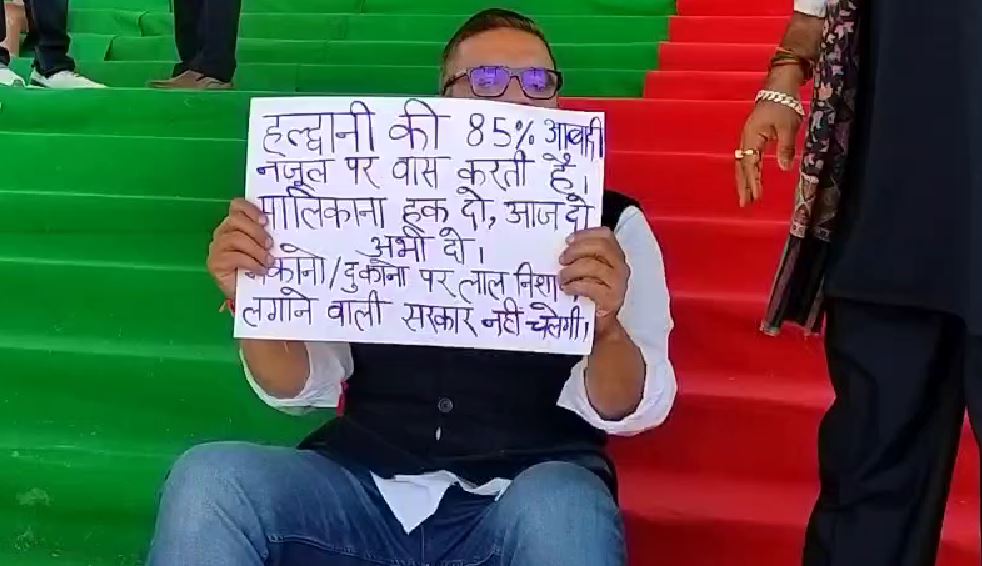 हल्द्वानी की 85% आबादी
नजूल पर वास करती है।
मालिकाना हक दो, आज दो
अभी दो।
मकानो/दुकानो पर लाल निशान
लगाने वाली सरकार नहीं चलेगी।